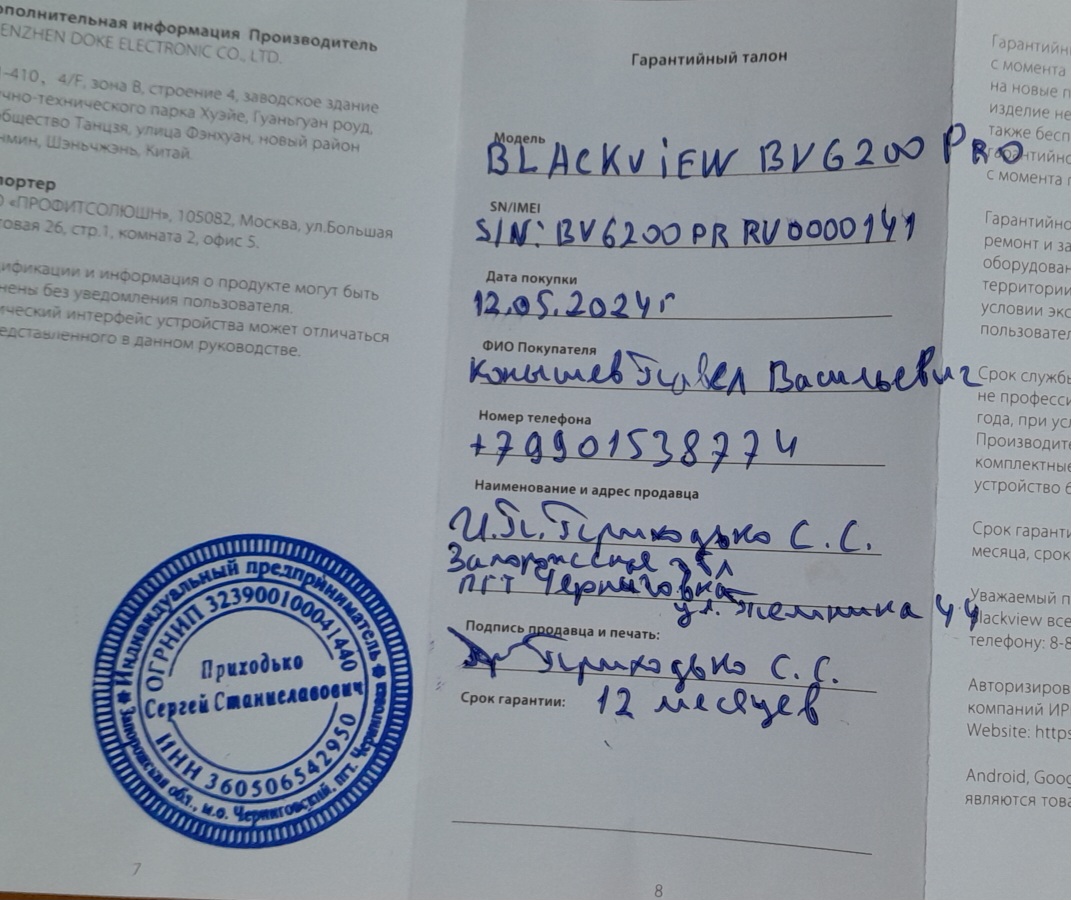 ополнительная информация Производитель
ENZHEN DOKE ELECTRONIC CO., LTD.
-410, 4/F, зона B, строение 4, заводское здание
чно-технического парка Хуэйе, Гуаньгуан роуд,
бщество Танцзя, улица Фэнхуан, новый район
нмин, Шэньчжэнь, Китай.
портер
О «ПРОФИТСОЛЮШН», 105082, Москва, ул.Большая
товая 26, стр.1, комната 2, офис 5.
ификации и информация о продукте могут быть
нены без уведомления пользователя.
ический интерфейс устройства может отличаться
едставленного в данном руководстве.
Индивидуальный предприниматель
ОГРНИП 323900100041440
Приходько
Сергей Станиславович
ИНН 360506542950
Запорожская обл., м.о. Черниговский, пгт. Черниговка
7
Гарантийный талон
Модель
BLACKVIEW BV6200 PRO
SN/IMEI
S/N: BV6200PRRV0000141
Дата покупки
12.05.2024г
ФИО Покупателя
Конышев Павел Васильевич
Номер телефона
+79901538774
Наименование и адрес продавца
И.П. Приходько С.С.
Запорожская обл
пгт Черниговка
ул. 44
Подпись продавца и печать:
Приходько С.С.
Срок гарантии: 12 месяцев
8
Гарантийн
с момента
на новые п
изделие не
также бесп
гарантийно
с момента п
Гарантийно
ремонт и за
оборудован
территории
условии экс
пользовател
Срок службы
не професси
года, при усл
Производите
комплектные
устройство б
Срок гаранти
месяца, срок
Уважаемый п
Blackview все
телефону: 8-8
Авторизиров
компаний ИР
Website: https
Android, Goog
являются това